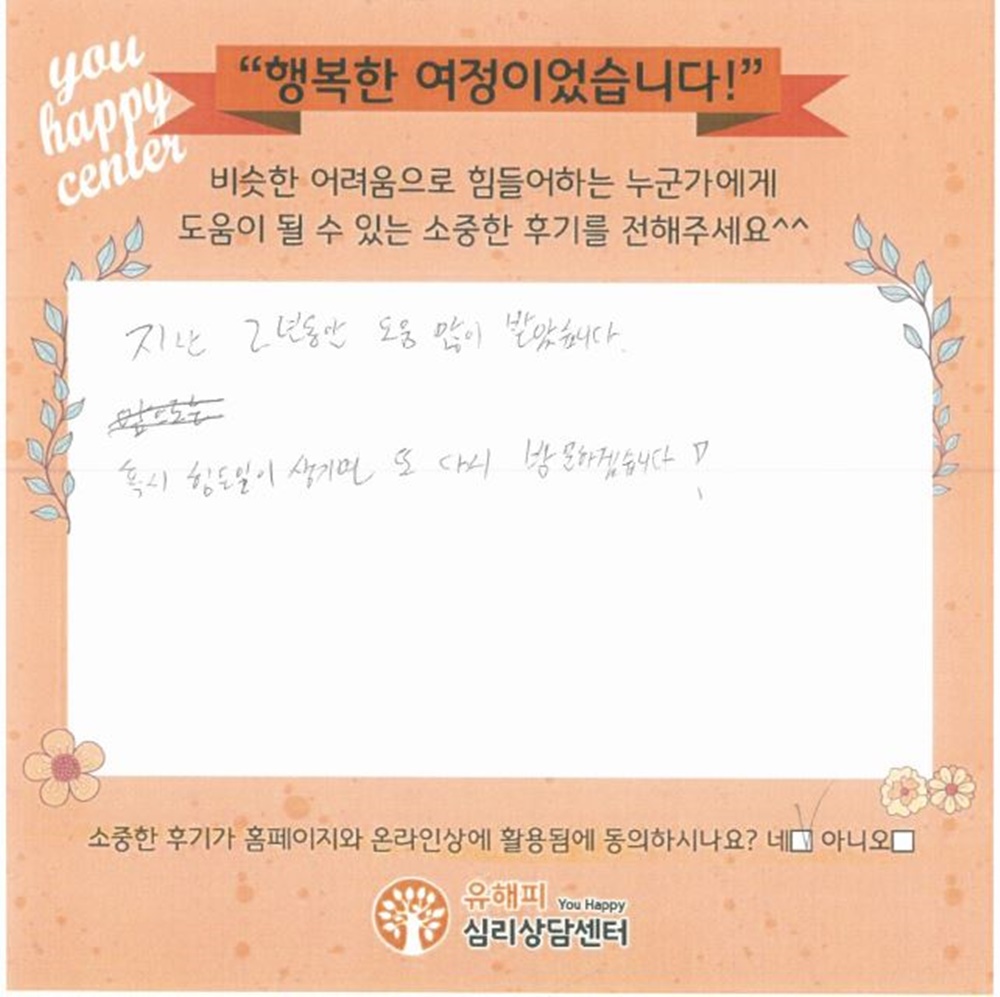 you
happy
center
“행복한 여정이었습니다!”
비슷한 어려움으로 힘들어하는 누군가에게
도움이 될 수 있는 소중한 후기를 전해주세요^^
지난 2년동안 도움 많이 받았습니다.
혹시 힘든일이 생기면 또 다시 방문하겠습니다!
소중한 후기가 홈페이지와 온라인상에 활용됨에 동의하시나요? 네 아니오
유해피 You Happy
심리상담센터